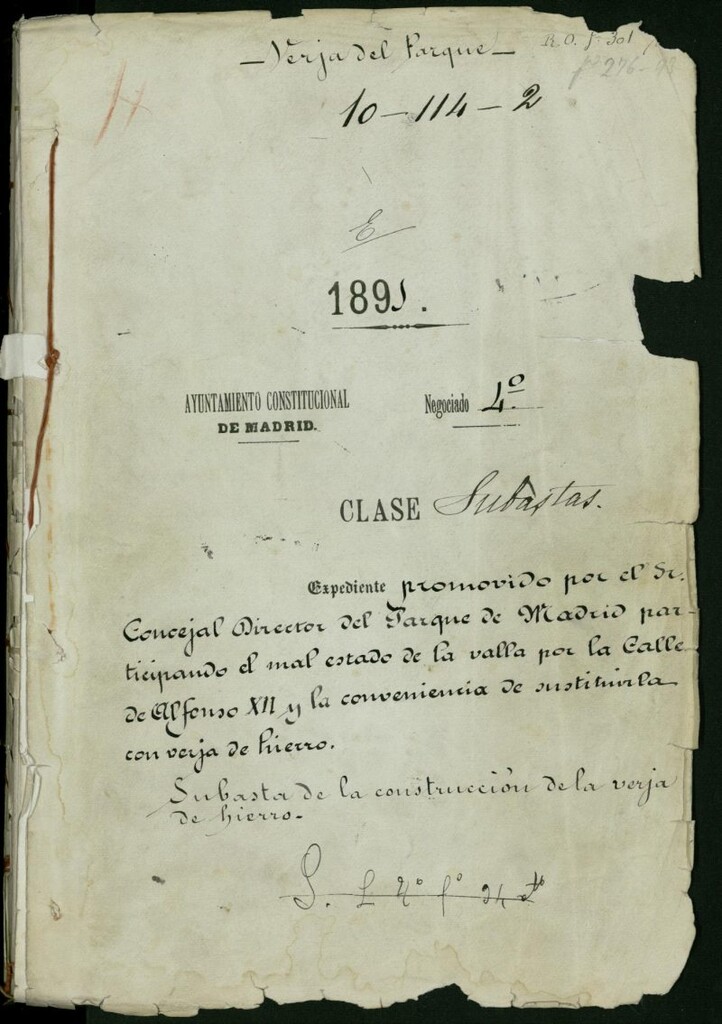 Verja del Parque
R. O. fº 301
10-114-2
E
1891.
AYUNTAMIENTO CONSTITUCIONAL
DE MADRID.
Negociado 4º
CLASE Subastas.
Expediente promovido por el Sr.
Concejal Director del Parque de Madrid par-
ticipando el mal estado de la valla por la Calle
de Alfonso XII y la conveniencia de sustituirla
con verja de hierro.
Subasta de la construcción de la verja
de hierro.